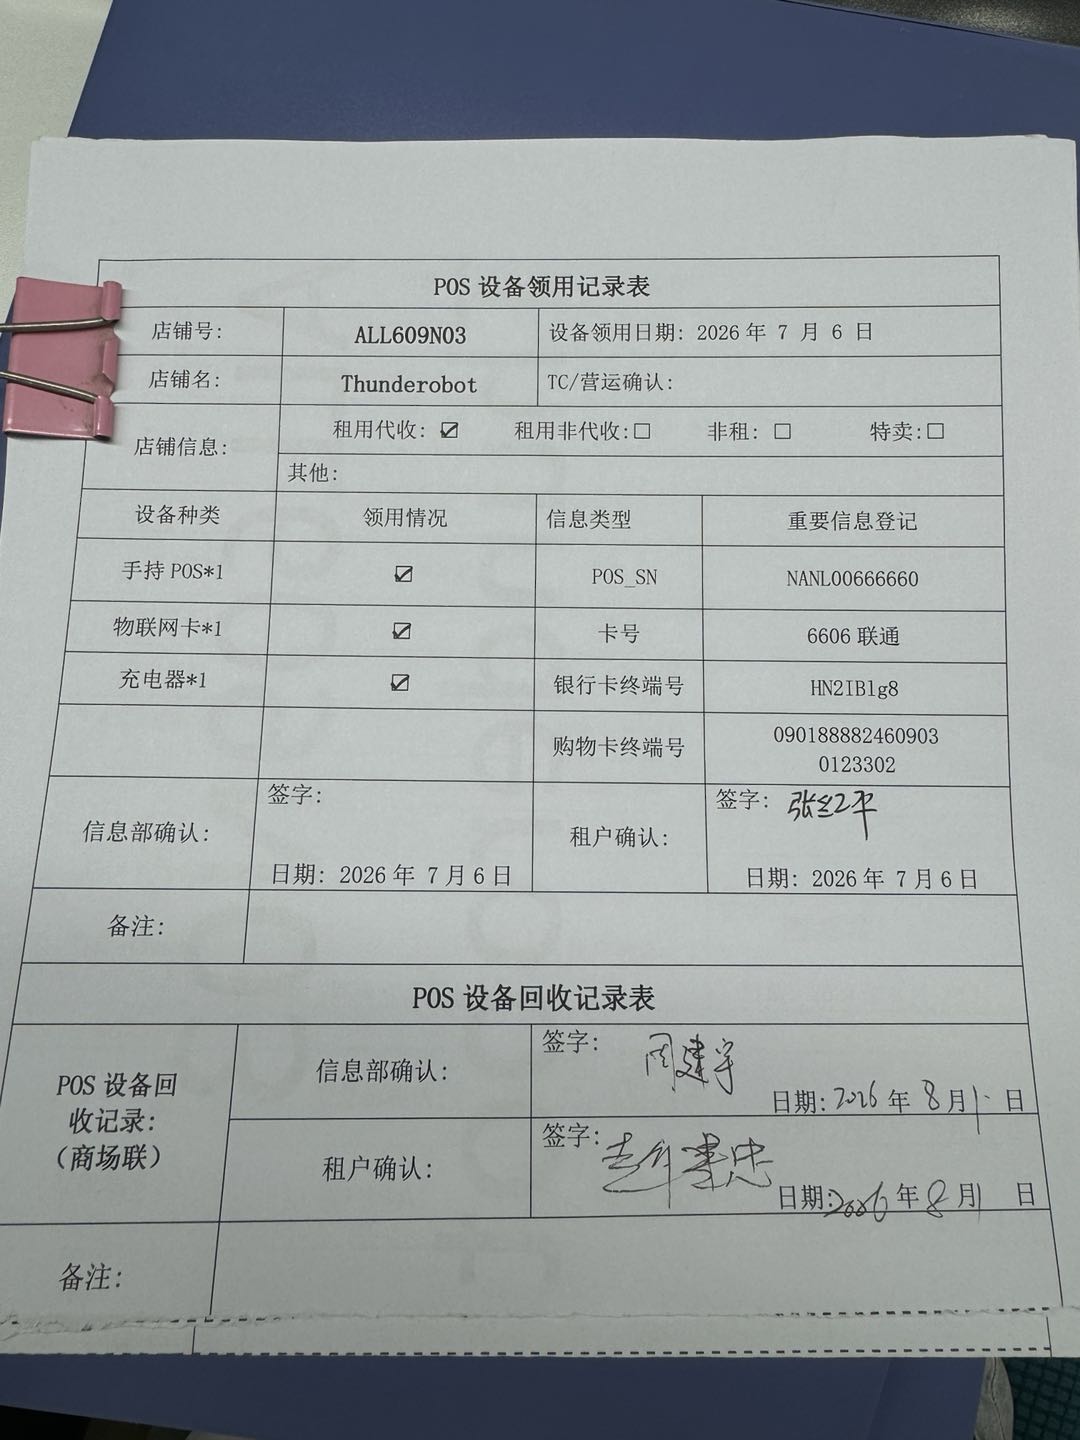 POS 设备领用记录表
店铺号: ALL609N03 设备领用日期: 2026 年 7 月 6 日
店铺名: Thunderobot TC/营运确认:
店铺信息: 租用代收: ☑ 租用非代收:☐ 非租: ☐ 特卖:☐
其他:
设备种类 领用情况 信息类型 重要信息登记
手持 POS*1 ☑ POS_SN NANL00666660
物联网卡*1 ☑ 卡号 6606 联通
充电器*1 ☑ 银行卡终端号 HN2IBlg8
购物卡终端号 090188882460903
0123302
信息部确认: 签字: 租户确认: 签字: 张红平
日期: 2026 年 7 月 6 日 日期: 2026 年 7 月 6 日
备注:
POS 设备回收记录表
POS 设备回
收记录:
(商场联)
信息部确认: 签字: 周建宇
日期: 2026 年 8 月 1 日
租户确认: 签字:
日期: 2026 年 8 月 1 日
备注: